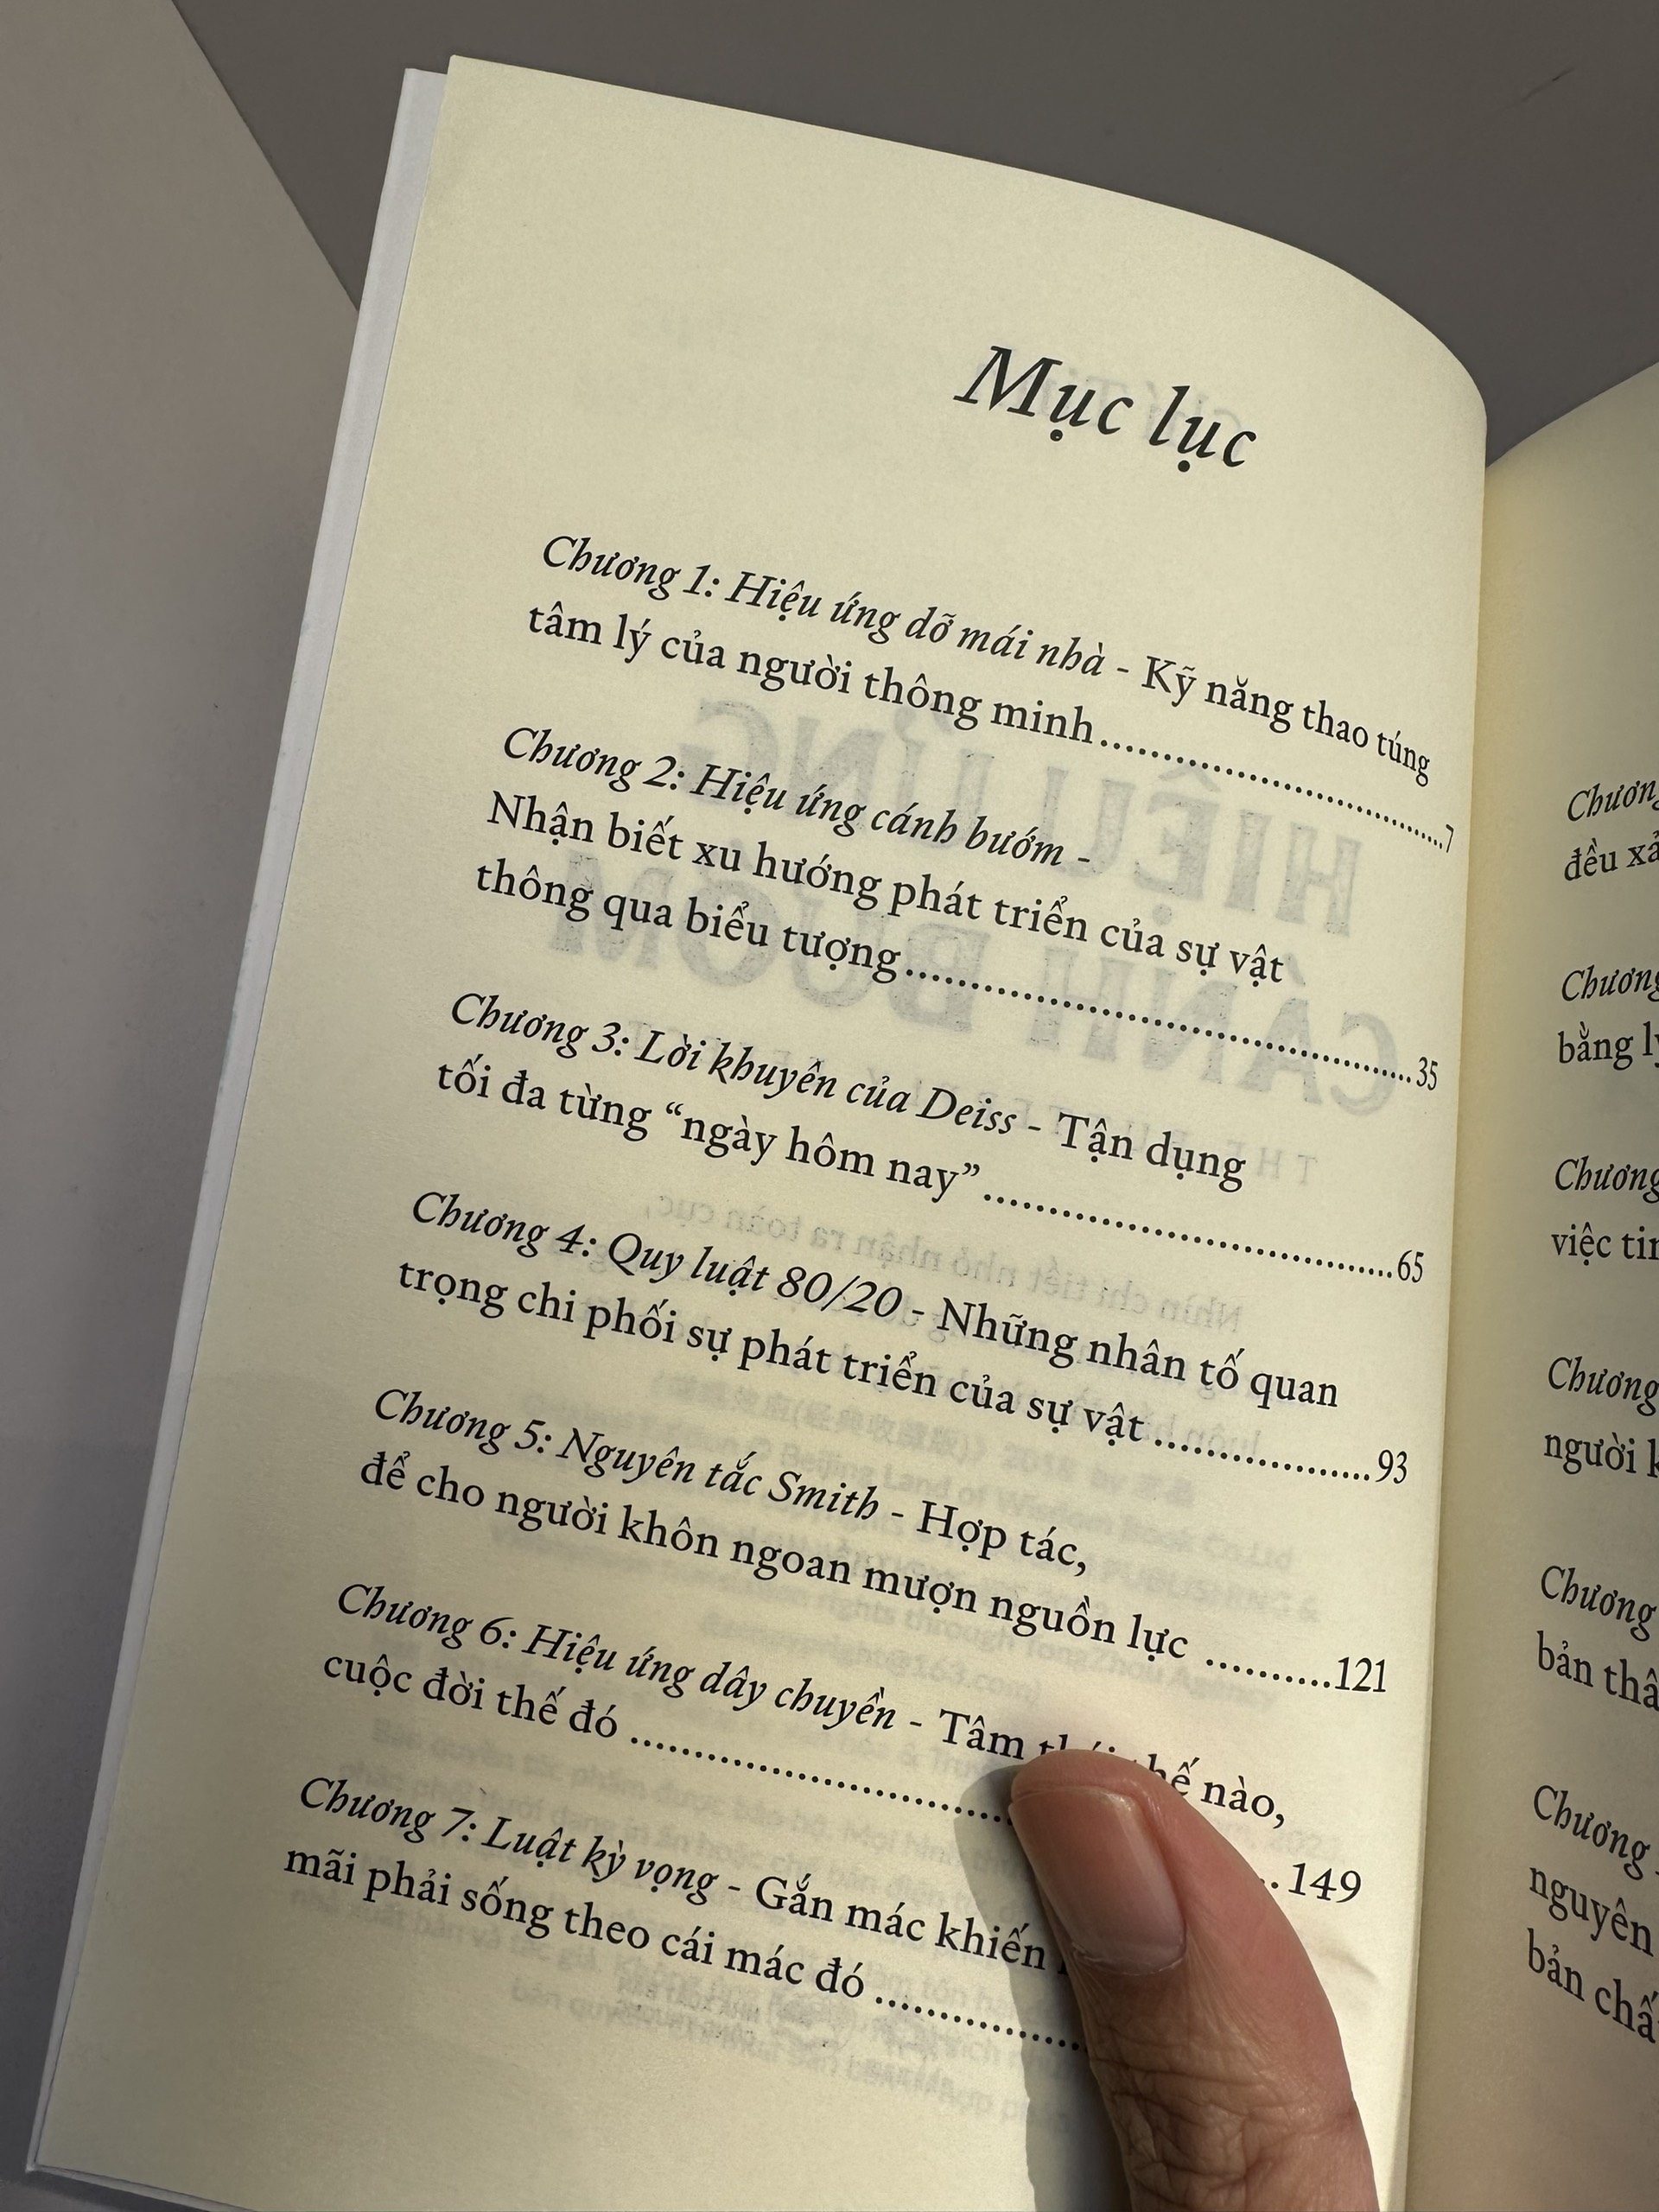 Mục lục
Chương 1: Hiệu ứng dỡ mái nhà - Kỹ năng thao túng
tâm lý của người thông minh........................................7
Chương 2: Hiệu ứng cánh bướm -
Nhận biết xu hướng phát triển của sự vật
thông qua biểu tượng........................................35
Chương 3: Lời khuyên của Deiss - Tận dụng
tối đa từng “ngày hôm nay”................................65
Chương 4: Quy luật 80/20 - Những nhân tố quan
trọng chi phối sự phát triển của sự vật .................93
Chương 5: Nguyên tắc Smith - Hợp tác,
để cho người khôn ngoan mượn nguồn lực ..........121
Chương 6: Hiệu ứng dây chuyền - Tâm thế nào,
cuộc đời thế đó ................................149
Chương 7: Luật kỳ vọng - Gắn mác khiến
mãi phải sống theo cái mác đó .................
Chương
đều
Chương
bằng
Chương
việc
Chương
người
Chương
bản
Chương
nguyên
bản